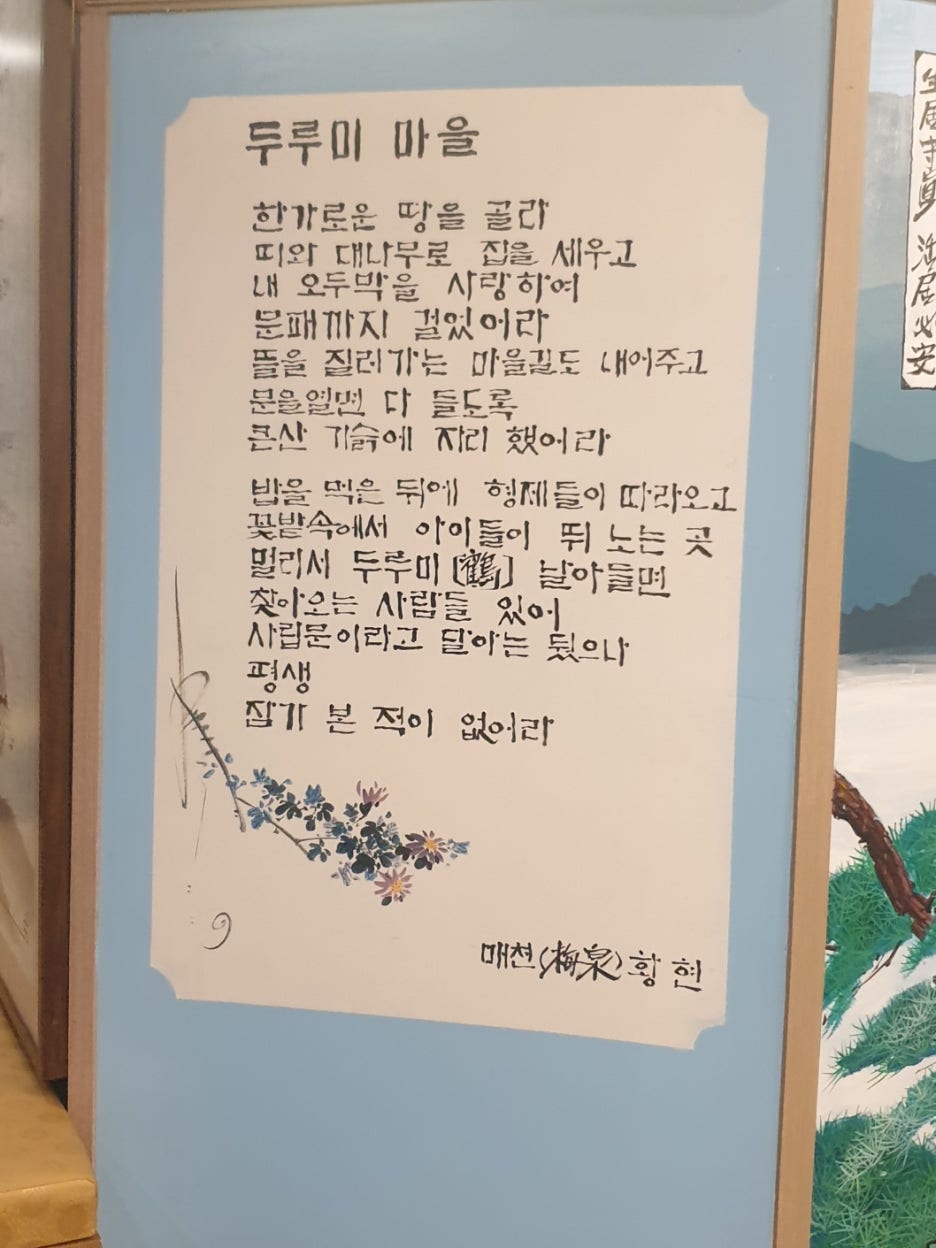 두루미 마을
한가로운 땅을 골라
띠와 대나무로 집을 세우고
내 오두막을 사랑하여
문패까지 걸었어라
뜰을 질러가는 마을길도 내어주고
문을열면 다 들도록
큰산 기슭에 자리 했어라
밥을 먹은 뒤에 형제들이 따라오고
꽃밭속에서 아이들이 뛰 노는 곳
멀리서 두루미[鶴] 날아들면
찾아오는 사람들 있어
사립문이라고 달아는 뒀으나
평생
잠가 본 적이 없어라
매천(梅泉) 황 현
生居
居必安